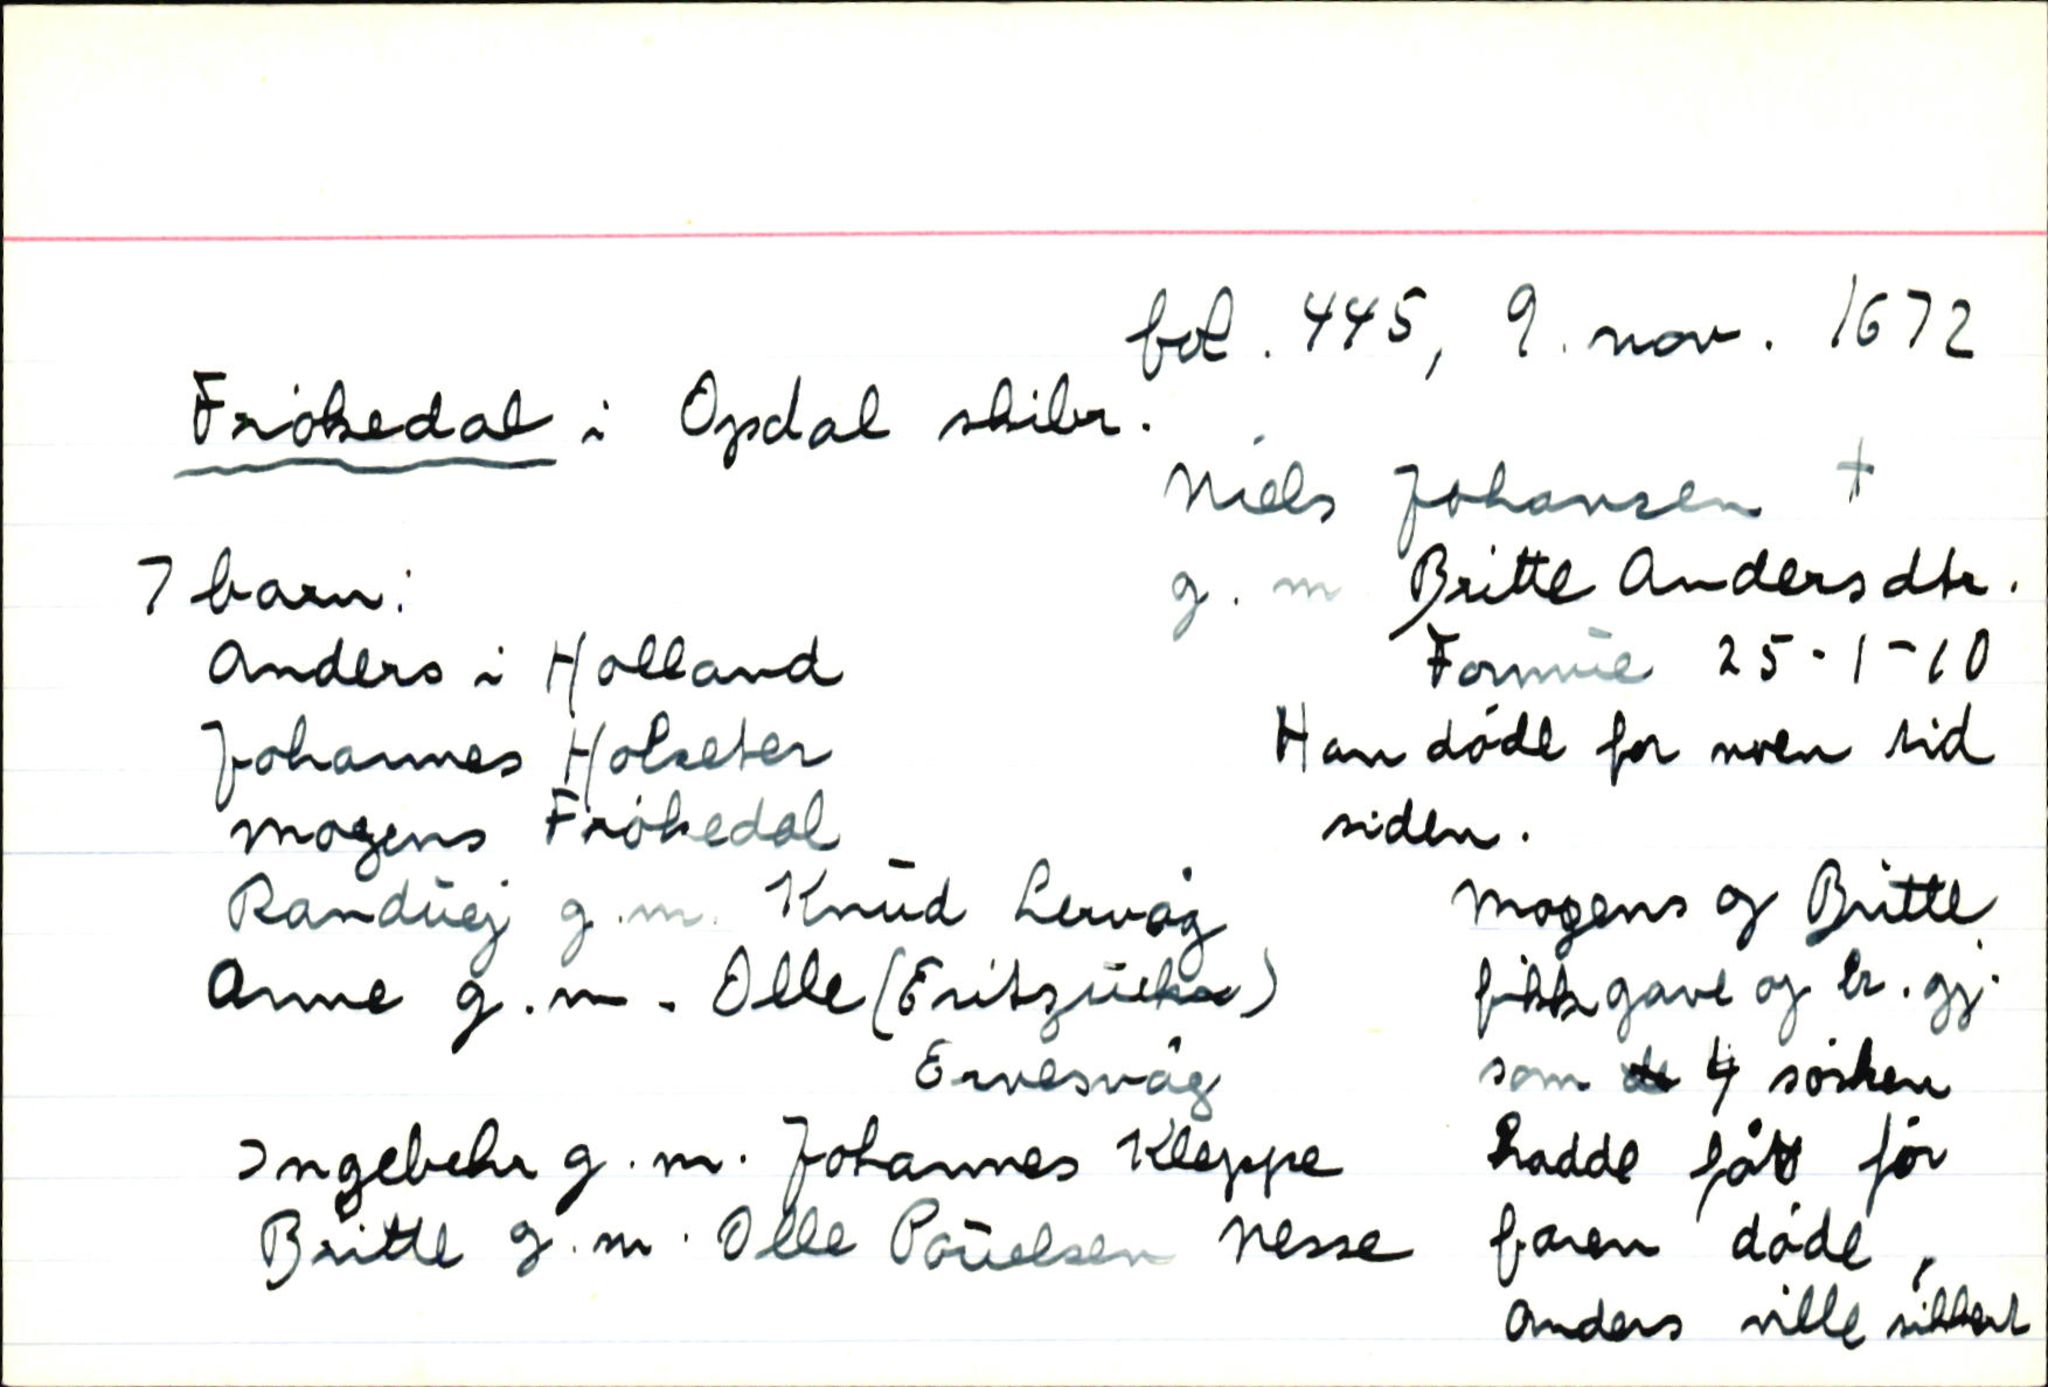 fol. 445, 9. nov. 1672
Frøkedal i Opdal skibr.
Niels Johansen †
g. m. Britte Andersdtr.
Formue 25-1-10
Han døde for noen tid
siden.
7 barn:
Anders i Holland
Johannes Holseter
Mogens Frøkedal
Randuej g.m. Knud Lervåg
Anne g.m. Olle (Fritzuchs)
Ervesvåg
Ingebehr g.m. Johannes Kleppe
Britte g.m. Olle Pouelsen Nesse
Mogens og Britte
fikk gave og br. gj.
som 4 søsken
hadde fått før
faren døde,
Anders ville sikkert